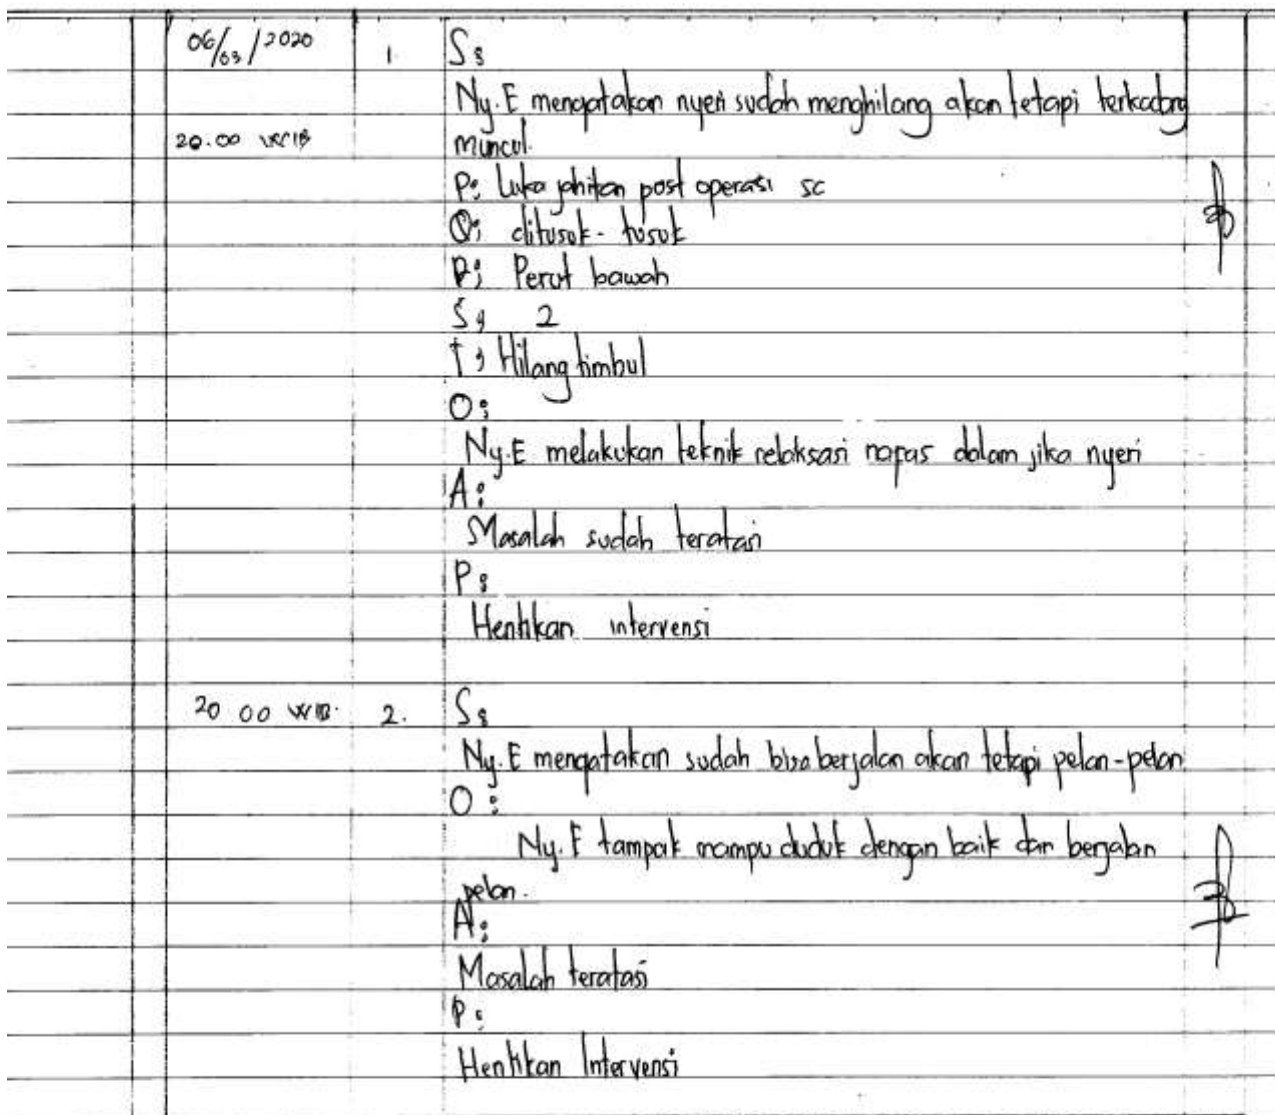 06/03/2020 1. S:
Ny. E mengatakan nyeri sudah menghilang akan tetapi terkadang
20.00 WIB muncul.
P: Luka jahitan post operasi sc
Q: ditusuk-tusuk
R: Perut bawah
S: 2
T: Hilang timbul
O:
Ny. E melakukan teknik relaksasi napas dalam jika nyeri
A:
Masalah sudah teratasi
P:
Hentikan intervensi
20 00 WIB. 2. S:
Ny. E mengatakan sudah bisa berjalan akan tetapi pelan-pelan
O:
Ny. E tampak mampu duduk dengan baik dan berjalan
pelan.
A:
Masalah teratasi
P:
Hentikan Intervensi